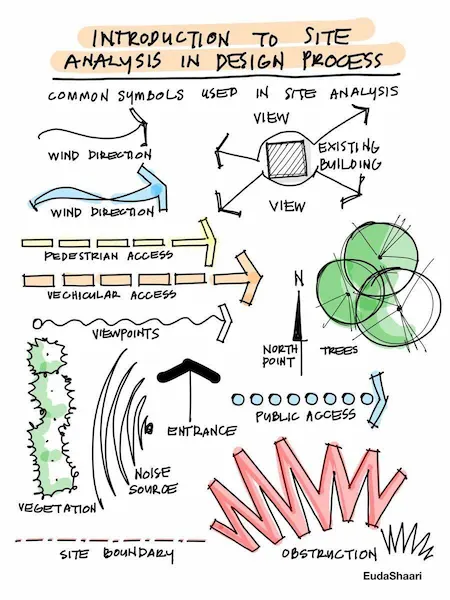 INTRODUCTION TO SITE
ANALYSIS IN DESIGN PROCESS
COMMON SYMBOLS USED IN SITE ANALYSIS
WIND DIRECTION
VIEW
EXISTING
BUILDING
VIEW
WIND DIRECTION
PEDESTRIAN ACCESS
VECHICULAR ACCESS
VIEWPOINTS
N
NORTH
POINT
TREES
ENTRANCE
PUBLIC ACCESS
NOISE
SOURCE
VEGETATION
SITE BOUNDARY
OBSTRUCTION
EudaShaari